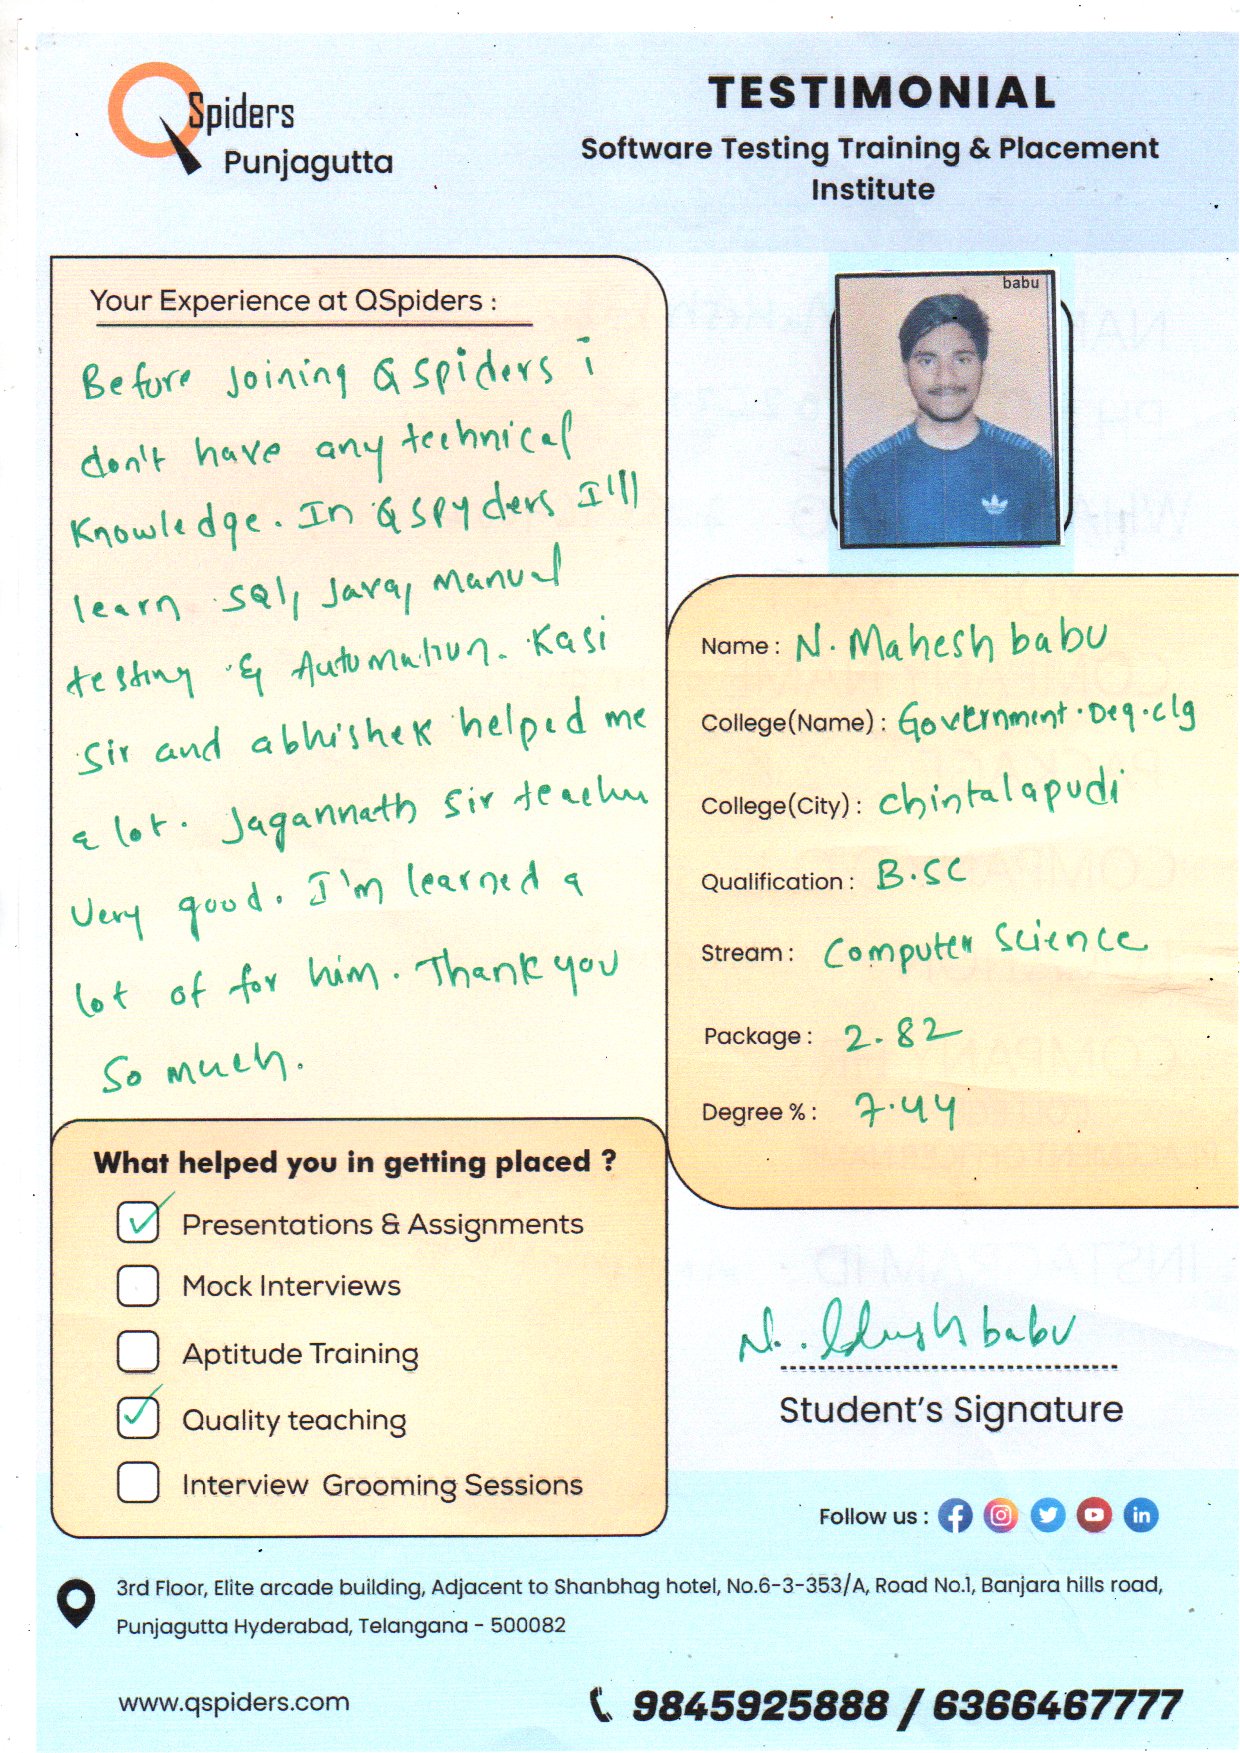 QSpiders
Punjagutta
TESTIMONIAL
Software Testing Training & Placement
Institute
Your Experience at QSpiders :
Before Joining QSpiders i
don't have any technical
Knowledge. In QSpyders I'll
learn SQl, Java, Manual
testing & Automation. Kasi
Sir and abhishek helped me
a lot. Jagannath Sir teach
Very good. I'm learned a
lot of for him. Thank you
So much.
babu
Name : N. Mahesh babu
College(Name) : Government. Deg. clg
College(City) : Chintalapudi
Qualification : B.SC
Stream : Computer Science
Package : 2.82
Degree % : 7.44
What helped you in getting placed ?
Presentations & Assignments
Mock Interviews
Aptitude Training
Quality teaching
Interview Grooming Sessions
N. babu
Student's Signature
Follow us :
3rd Floor, Elite arcade building, Adjacent to Shanbhag hotel, No.6-3-353/A, Road No.1, Banjara hills road,
Punjagutta Hyderabad, Telangana - 500082
www.qspiders.com
9845925888 / 6366467777